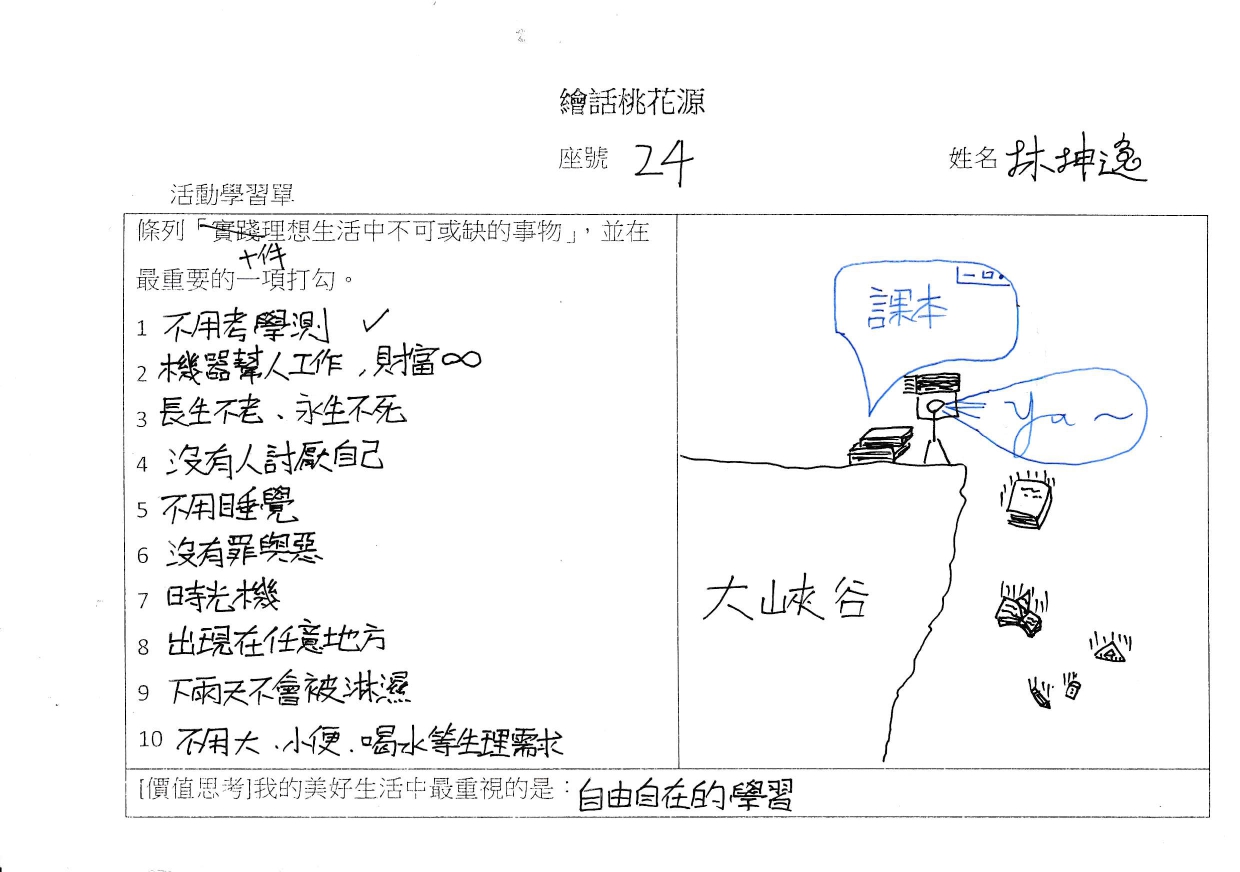 繪話桃花源
座號 24 姓名 林坤逸
活動學習單
條列「實踐理想生活中不可或缺的事物」，並在
十件
最重要的一項打勾。
1 不用考學測 ✓
2 機器幫人工作，財富∞
3 長生不老、永生不死
4 沒有人討厭自己
5 不用睡覺
6 沒有罪與惡
7 時光機
8 出現在任意地方
9 下雨天不會被淋濕
10 不用大、小便、喝水等生理需求
課本
Ya~
大峽谷
[價值思考]我的美好生活中最重視的是：自由自在的學習